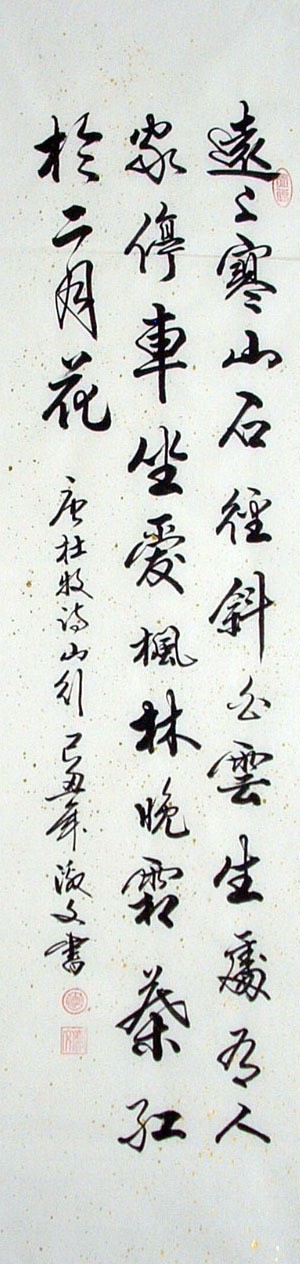 遠〻寒山石徑斜白雲生處有人
家停車坐愛楓林晚霜葉紅
於二月花
唐杜牧詩山行己丑年淑文書